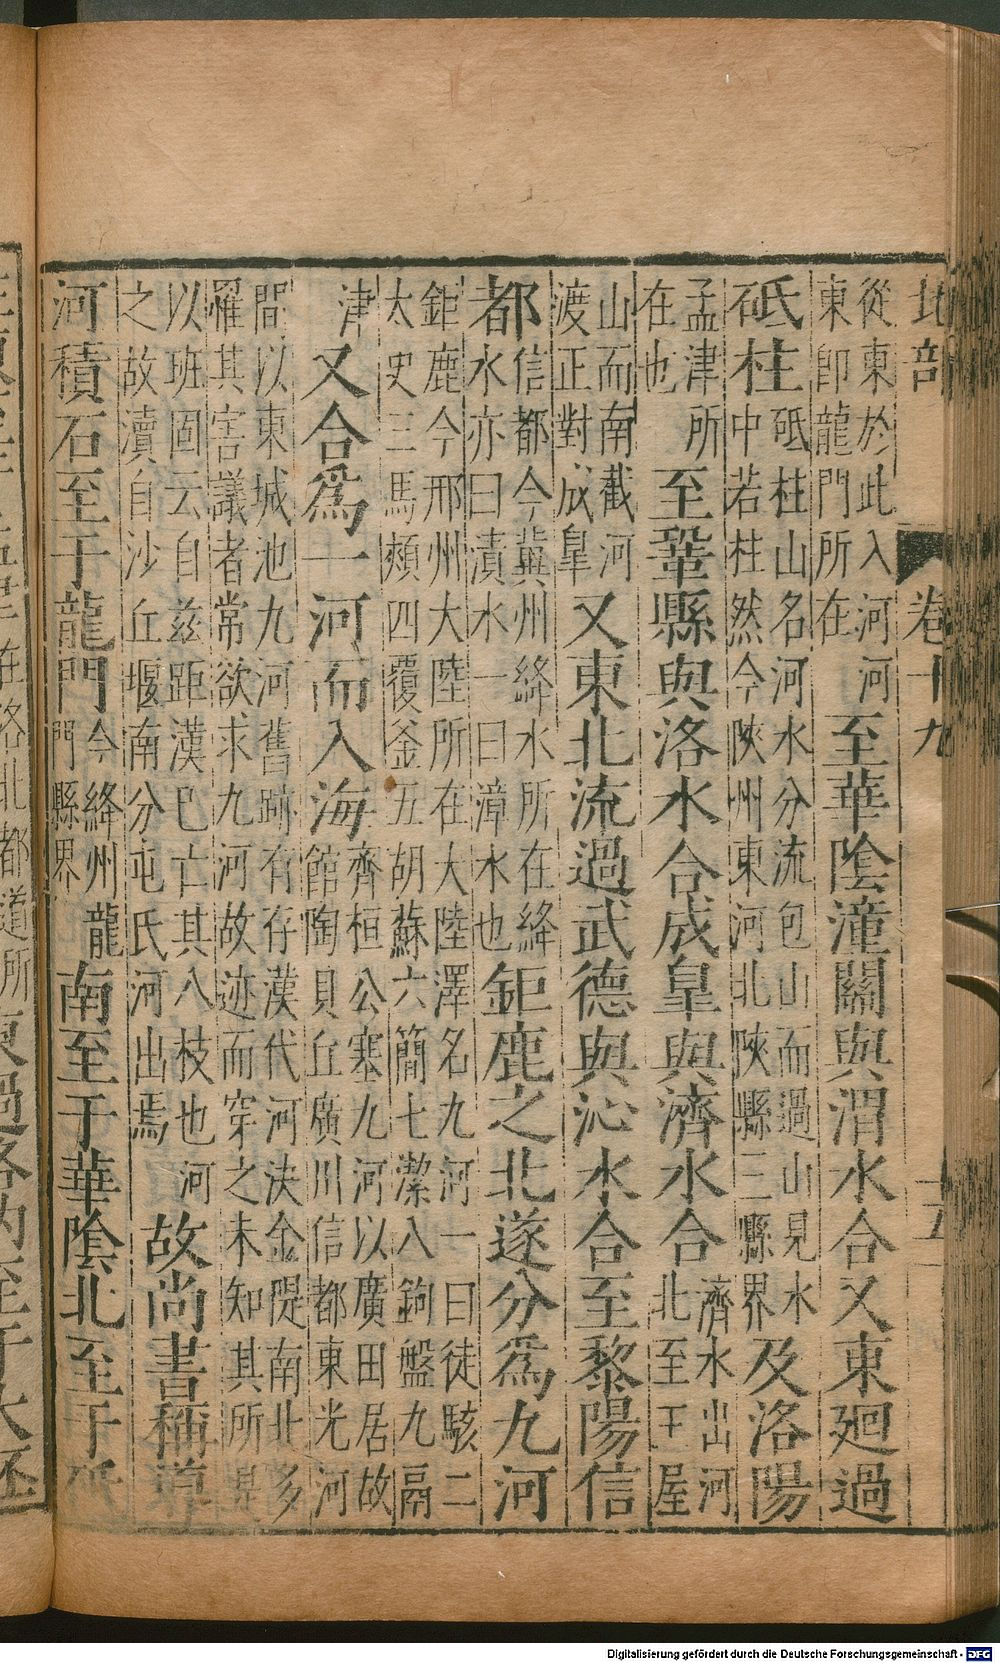 地部 卷十九 十五
從東於此入河河
東卽龍門所在
至華陰潼關與渭水合又東廻過
砥柱
砥柱山名河水分流包山而過山見水
中若柱然今陝州東河北陝縣三縣界
及洛陽
孟津所
在也
至鞏縣與洛水合成皐與濟水合
濟水出河
北至王屋
山而南截河
渡正對成皐
又東北流過武德與沁水合至黎陽信
都
信都今冀州絳水所在絳
水亦曰瀆水一曰漳水也
鉅鹿之北遂分爲九河
鉅鹿今邢州大陸所在大陸澤名九河一曰徒駭二
太史三馬頰四覆釜五胡蘇六簡七潔八鉤盤九鬲
津
又合爲一河而入海
齊桓公塞九河以廣田居故
館陶貝丘廣川信都東光河
間以東城池九河舊跡有存漢代河決金隄南北多
罹其害議者常欲求九河故迹而穿之未知其所是
以班固云自兹距漢已亡其八枝也河
之故瀆自沙丘堰南分屯氏河出焉
故尚書稱導
河積石至于龍門
今絳州龍
門縣界
南至于華陰北至于砥
在洛北都道所
東過洛汭至于大伾
Digitalisierung gefördert durch die Deutsche Forschungsgemeinschaft - DFG